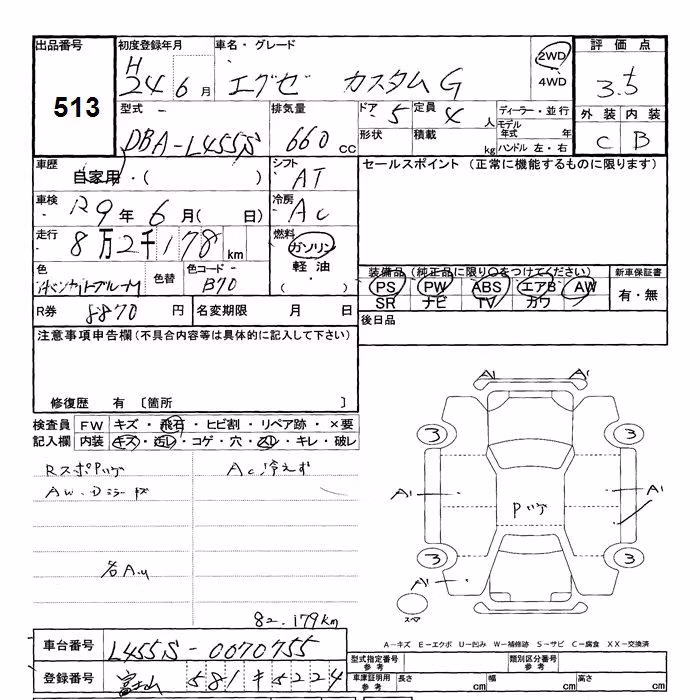 出品番号 初度登録年月 車名・グレード 評価点
513
H 24 6月 エグゼ カスタム G
2WD
4WD
3.5
型式 排気量 ドア 5 定員 4 人 ディーラー・並行 外装 内装
DBA-L455S 660 cc
形状 積載 kg モデル年式 年 C B
ハンドル 左・右
車歴 自家用・( ) シフト AT セールスポイント (正常に機能するものに限ります)
車検 R9年 6月( 日) 冷房 AC
走行 8万2千178 km 燃料 ガソリン
軽油・( )
色 色替 色コード B70
装備品 (純正品に限り○をつけてください) 新車保証書
PS PW ABS エアB AW 有・無
SR ナビ TV カワ
R券 8870円 名変期限 月 日 後日品
注意事項申告欄(不具合内容等は具体的に記入して下さい)
修復歴 有 〔箇所 〕
検査員 FW キズ・飛石・ヒビ割・リペア跡・×要
記入欄 内装 キズ・汚レ・コゲ・穴・スレ・キレ・破レ
AC冷えず
82.179km
A1 A1
3 3
A1 A1
3 3
A1
スペア
A-キズ E-エクボ U-凹み W-補修跡 S-サビ C-腐食 XX-交換済
車台番号 L455S-0070755
型式指定番号 参考 類別区分番号 参考
登録番号 富士山 581 キ5224
車庫証明用 参考 長さ cm 幅 cm 高さ cm